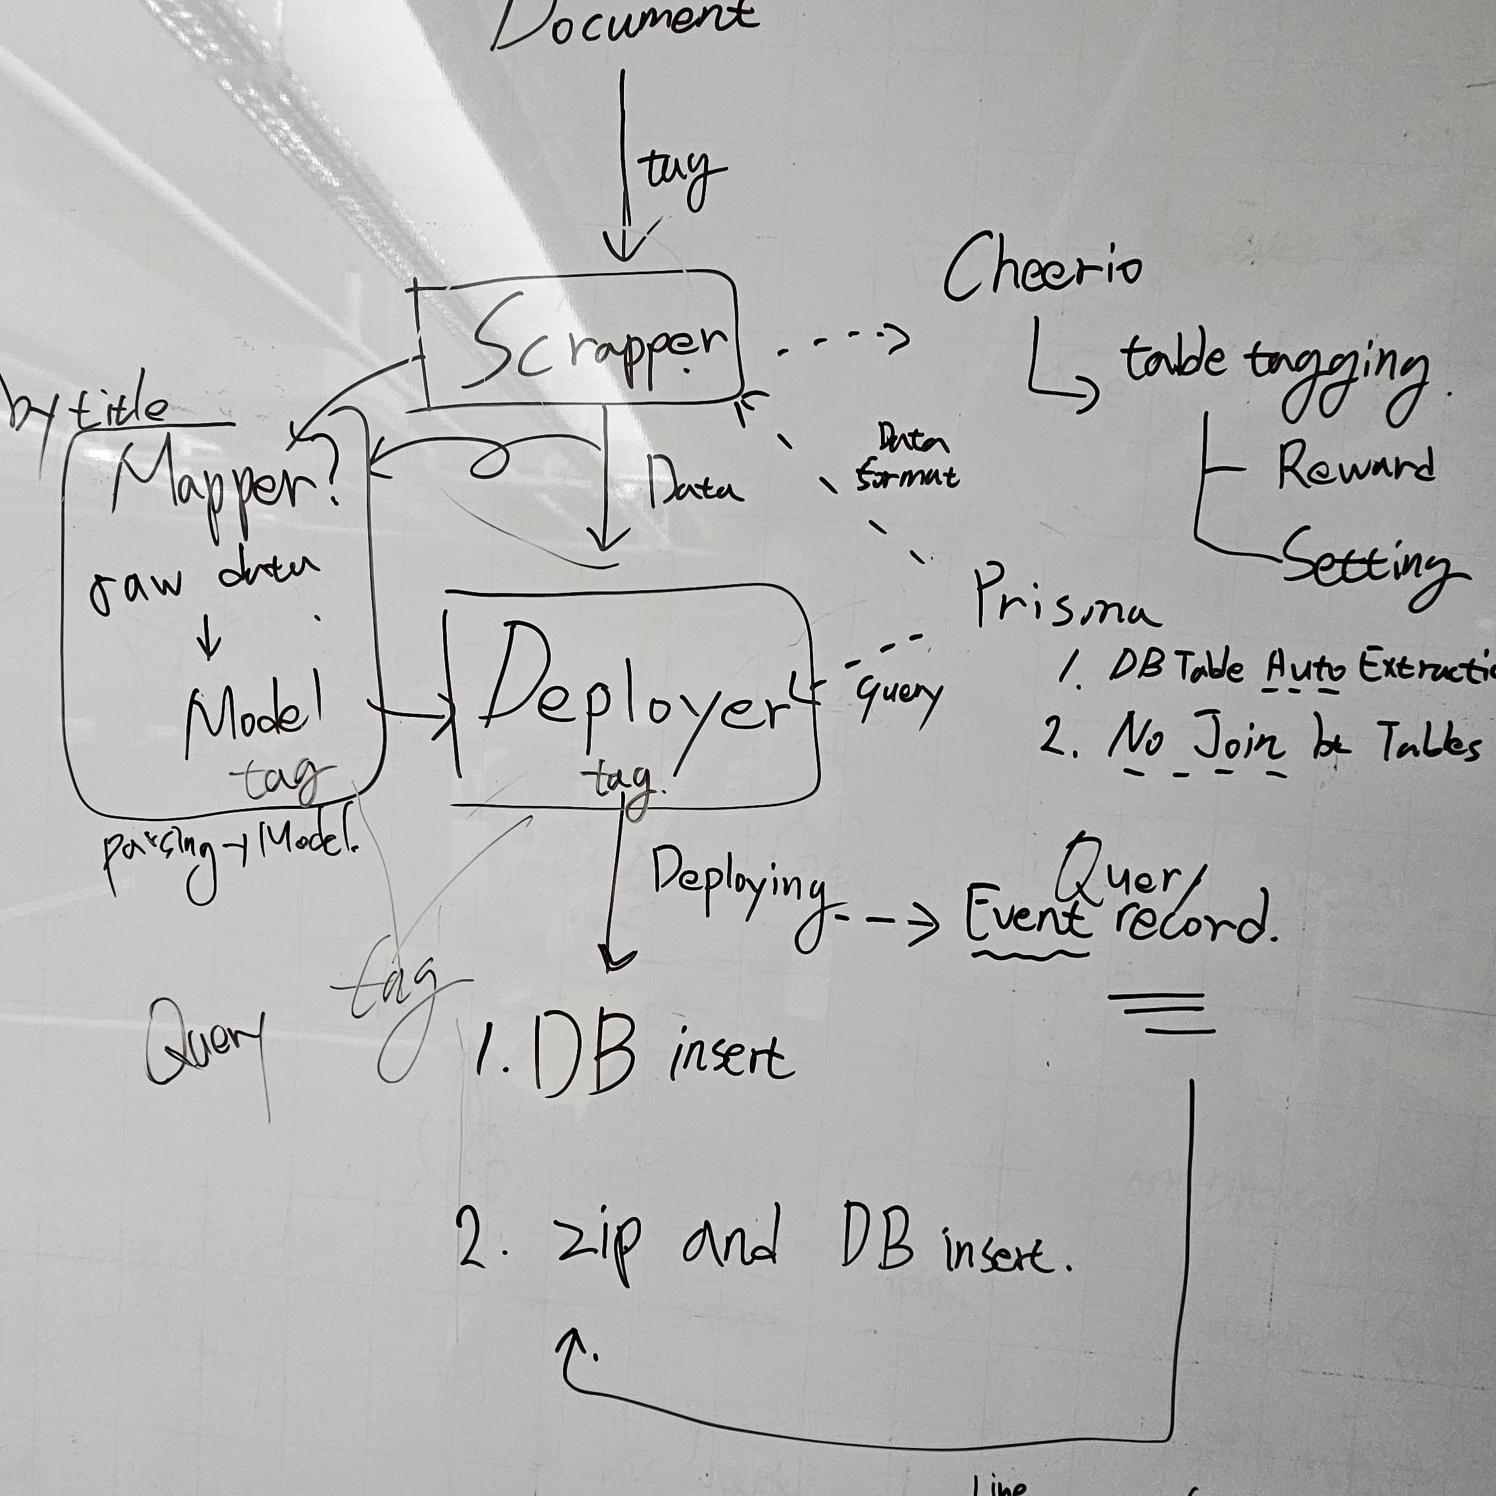 Document
tag
Scrapper
Cheerio
table tagging.
Reward
Setting
by title
Mapper?
raw data
Model
tag
parsing → Model.
Data
Data
format
Deployer
tag.
Query
Prisma
1. DB Table Auto Extractio
2. No Join bt Tables
Deploying
Query
Event record.
tag
Query
1. DB insert
2. zip and DB insert.
Line